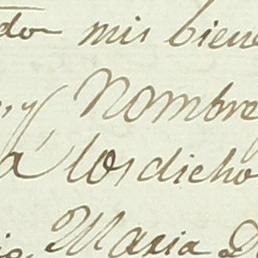 mis biene
y Nombre
a los dicho
Maria